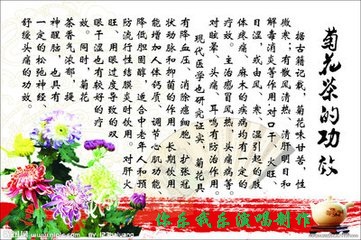 菊花茶的功效
据古籍记载,菊花味甘苦,性
微寒;有散风清热、清肝明目和
解毒消炎等作用。对口干、火旺、
目涩,或由风、寒、湿引起的肢
体疼痛、麻木的疾病均有一定的
疗效。主治感冒风热、头痛病等。
对眩晕、头痛、耳鸣有防治作用。
现代医学也研究证实,菊花具
有降血压、消除癌细胞、扩张冠
状动脉和抑菌的作用,长期饮用
能增加人体钙质、调节心肌功能、
降低胆固醇,适合中老年人和预
防流行性结膜炎时饮用。对肝火
旺、用眼过度导致的双
眼干涩也有较好的疗
效。同时,菊花
茶香气浓郁,提
神醒脑,也具有
一定的松弛神经、
舒缓头痛的功效。
你乐我乐演唱制作